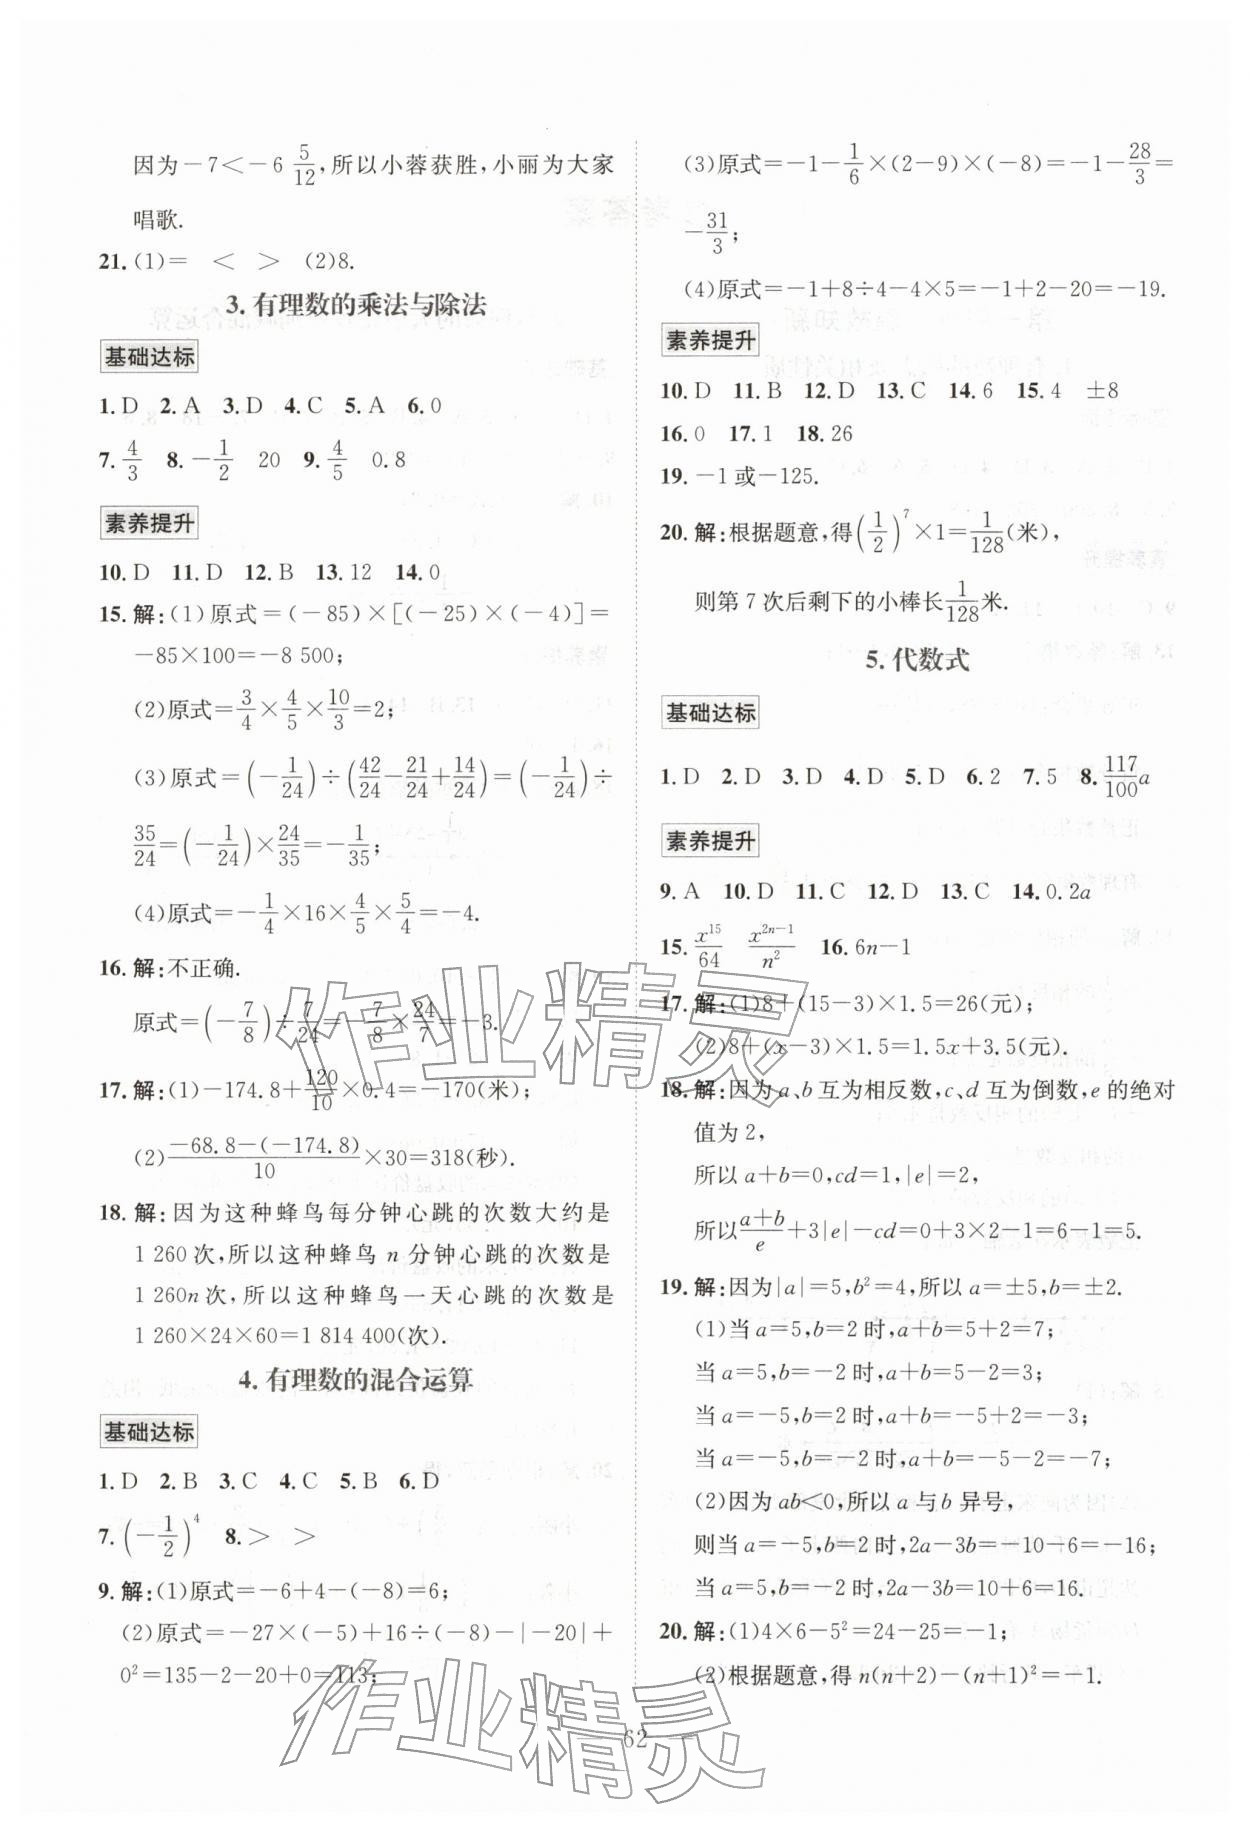 因为－7＜－6 5/12,所以小蓉获胜,小丽为大家
唱歌.
21. (1)＝ ＜ ＞ (2)8.
3. 有理数的乘法与除法
基础达标
1. D 2. A 3. D 4. C 5. A 6. 0
7. 4/3 8. －1/2 20 9. 4/5 0.8
素养提升
10. D 11. D 12. B 13. 12 14. 0
15. 解:(1)原式＝(－85)×[(－25)×(－4)]＝
－85×100＝－8 500;
(2)原式＝3/4×4/5×10/3＝2;
(3)原式＝(－1/24)÷(42/24－21/24＋14/24)＝(－1/24)÷
35/24＝(－1/24)×24/35＝－1/35;
(4)原式＝－1/4×16×4/5×5/4＝－4.
16. 解:不正确.
原式＝(－7/8)÷7/24＝－7/8×24/7＝－3.
17. 解:(1)－174.8＋120/10×0.4＝－170(米);
(2)(－68.8－(－174.8))/10×30＝318(秒).
18. 解:因为这种蜂鸟每分钟心跳的次数大约是
1 260次,所以这种蜂鸟 n 分钟心跳的次数是
1 260n次,所以这种蜂鸟一天心跳的次数是
1 260×24×60＝1 814 400(次).
4. 有理数的混合运算
基础达标
1. D 2. B 3. C 4. C 5. B 6. D
7. (－1/2)⁴ 8. ＞ ＞
9. 解:(1)原式＝－6＋4－(－8)＝6;
(2)原式＝－27×(－5)＋16÷(－8)－|－20|＋
0²＝135－2－20＋0＝113;
(3)原式＝－1－1/6×(2－9)×(－8)＝－1－28/3＝
－31/3;
(4)原式＝－1＋8÷4－4×5＝－1＋2－20＝－19.
素养提升
10. D 11. B 12. D 13. C 14. 6 15. 4 ±8
16. 0 17. 1 18. 26
19. －1或－125.
20. 解:根据题意,得(1/2)⁷×1＝1/128(米),
则第 7 次后剩下的小棒长1/128米.
5. 代数式
基础达标
1. D 2. D 3. D 4. D 5. D 6. 2 7. 5 8. 117/100a
素养提升
9. A 10. D 11. C 12. D 13. C 14. 0.2a
15. x¹⁵/64 x²ⁿ⁻¹/n² 16. 6n－1
17. 解:(1)8＋(15－3)×1.5＝26(元);
(2)8＋(x－3)×1.5＝1.5x＋3.5(元).
18. 解:因为 a、b 互为相反数,c、d 互为倒数,e 的绝对
值为 2,
所以 a＋b＝0,cd＝1,|e|＝2,
所以(a＋b)/e＋3|e|－cd＝0＋3×2－1＝6－1＝5.
19. 解:因为|a|＝5,b²＝4,所以 a＝±5,b＝±2.
(1)当 a＝5,b＝2 时,a＋b＝5＋2＝7;
当 a＝5,b＝－2 时,a＋b＝5－2＝3;
当 a＝－5,b＝2 时,a＋b＝－5＋2＝－3;
当 a＝－5,b＝－2 时,a＋b＝－5－2＝－7;
(2)因为 ab＜0,所以 a 与 b 异号,
则当 a＝－5,b＝2 时,2a－3b＝－10－6＝－16;
当 a＝5,b＝－2 时,2a－3b＝10＋6＝16.
20. 解:(1)4×6－5²＝24－25＝－1;
(2)根据题意,得 n(n＋2)－(n＋1)²＝－1.
62
作业精灵
作业精灵